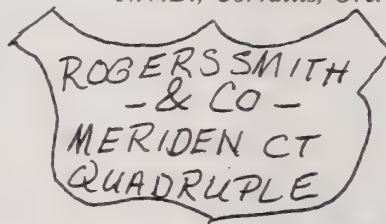 ROGERS SMITH
- & CO -
MERIDEN CT
QUADRUPLE